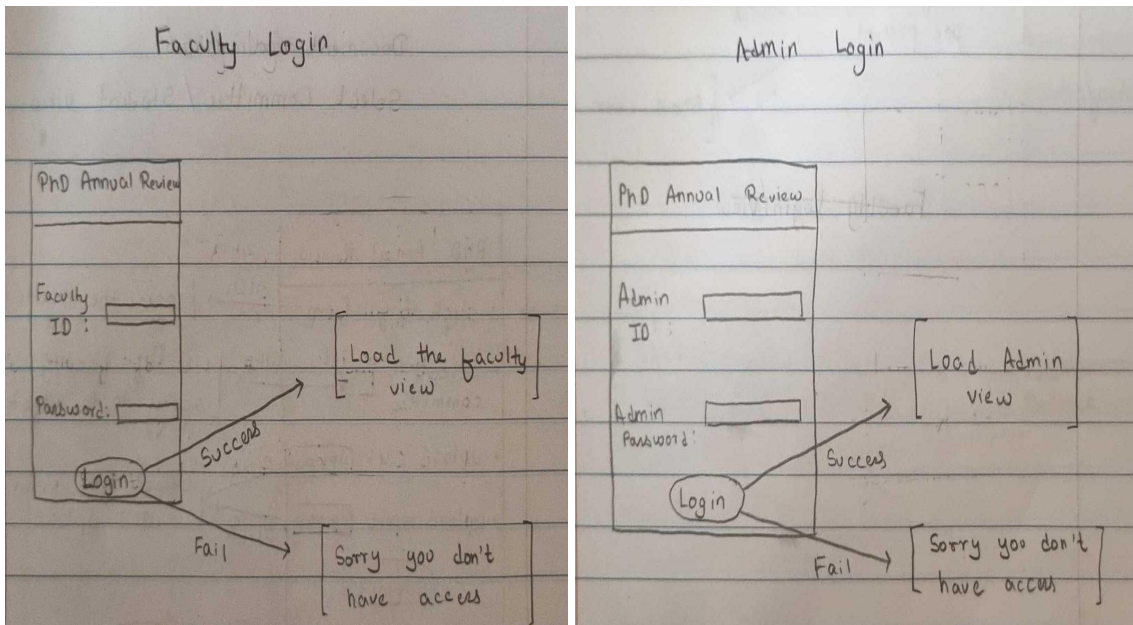 Faculty Login
PhD Annual Review
Faculty
ID :
Password:
Login
Success
Load the faculty
view
Fail
Sorry you don't
have access
Admin Login
PhD Annual Review
Admin
ID :
Admin
Password:
Login
Success
Load Admin
view
Fail
Sorry you don't
have access